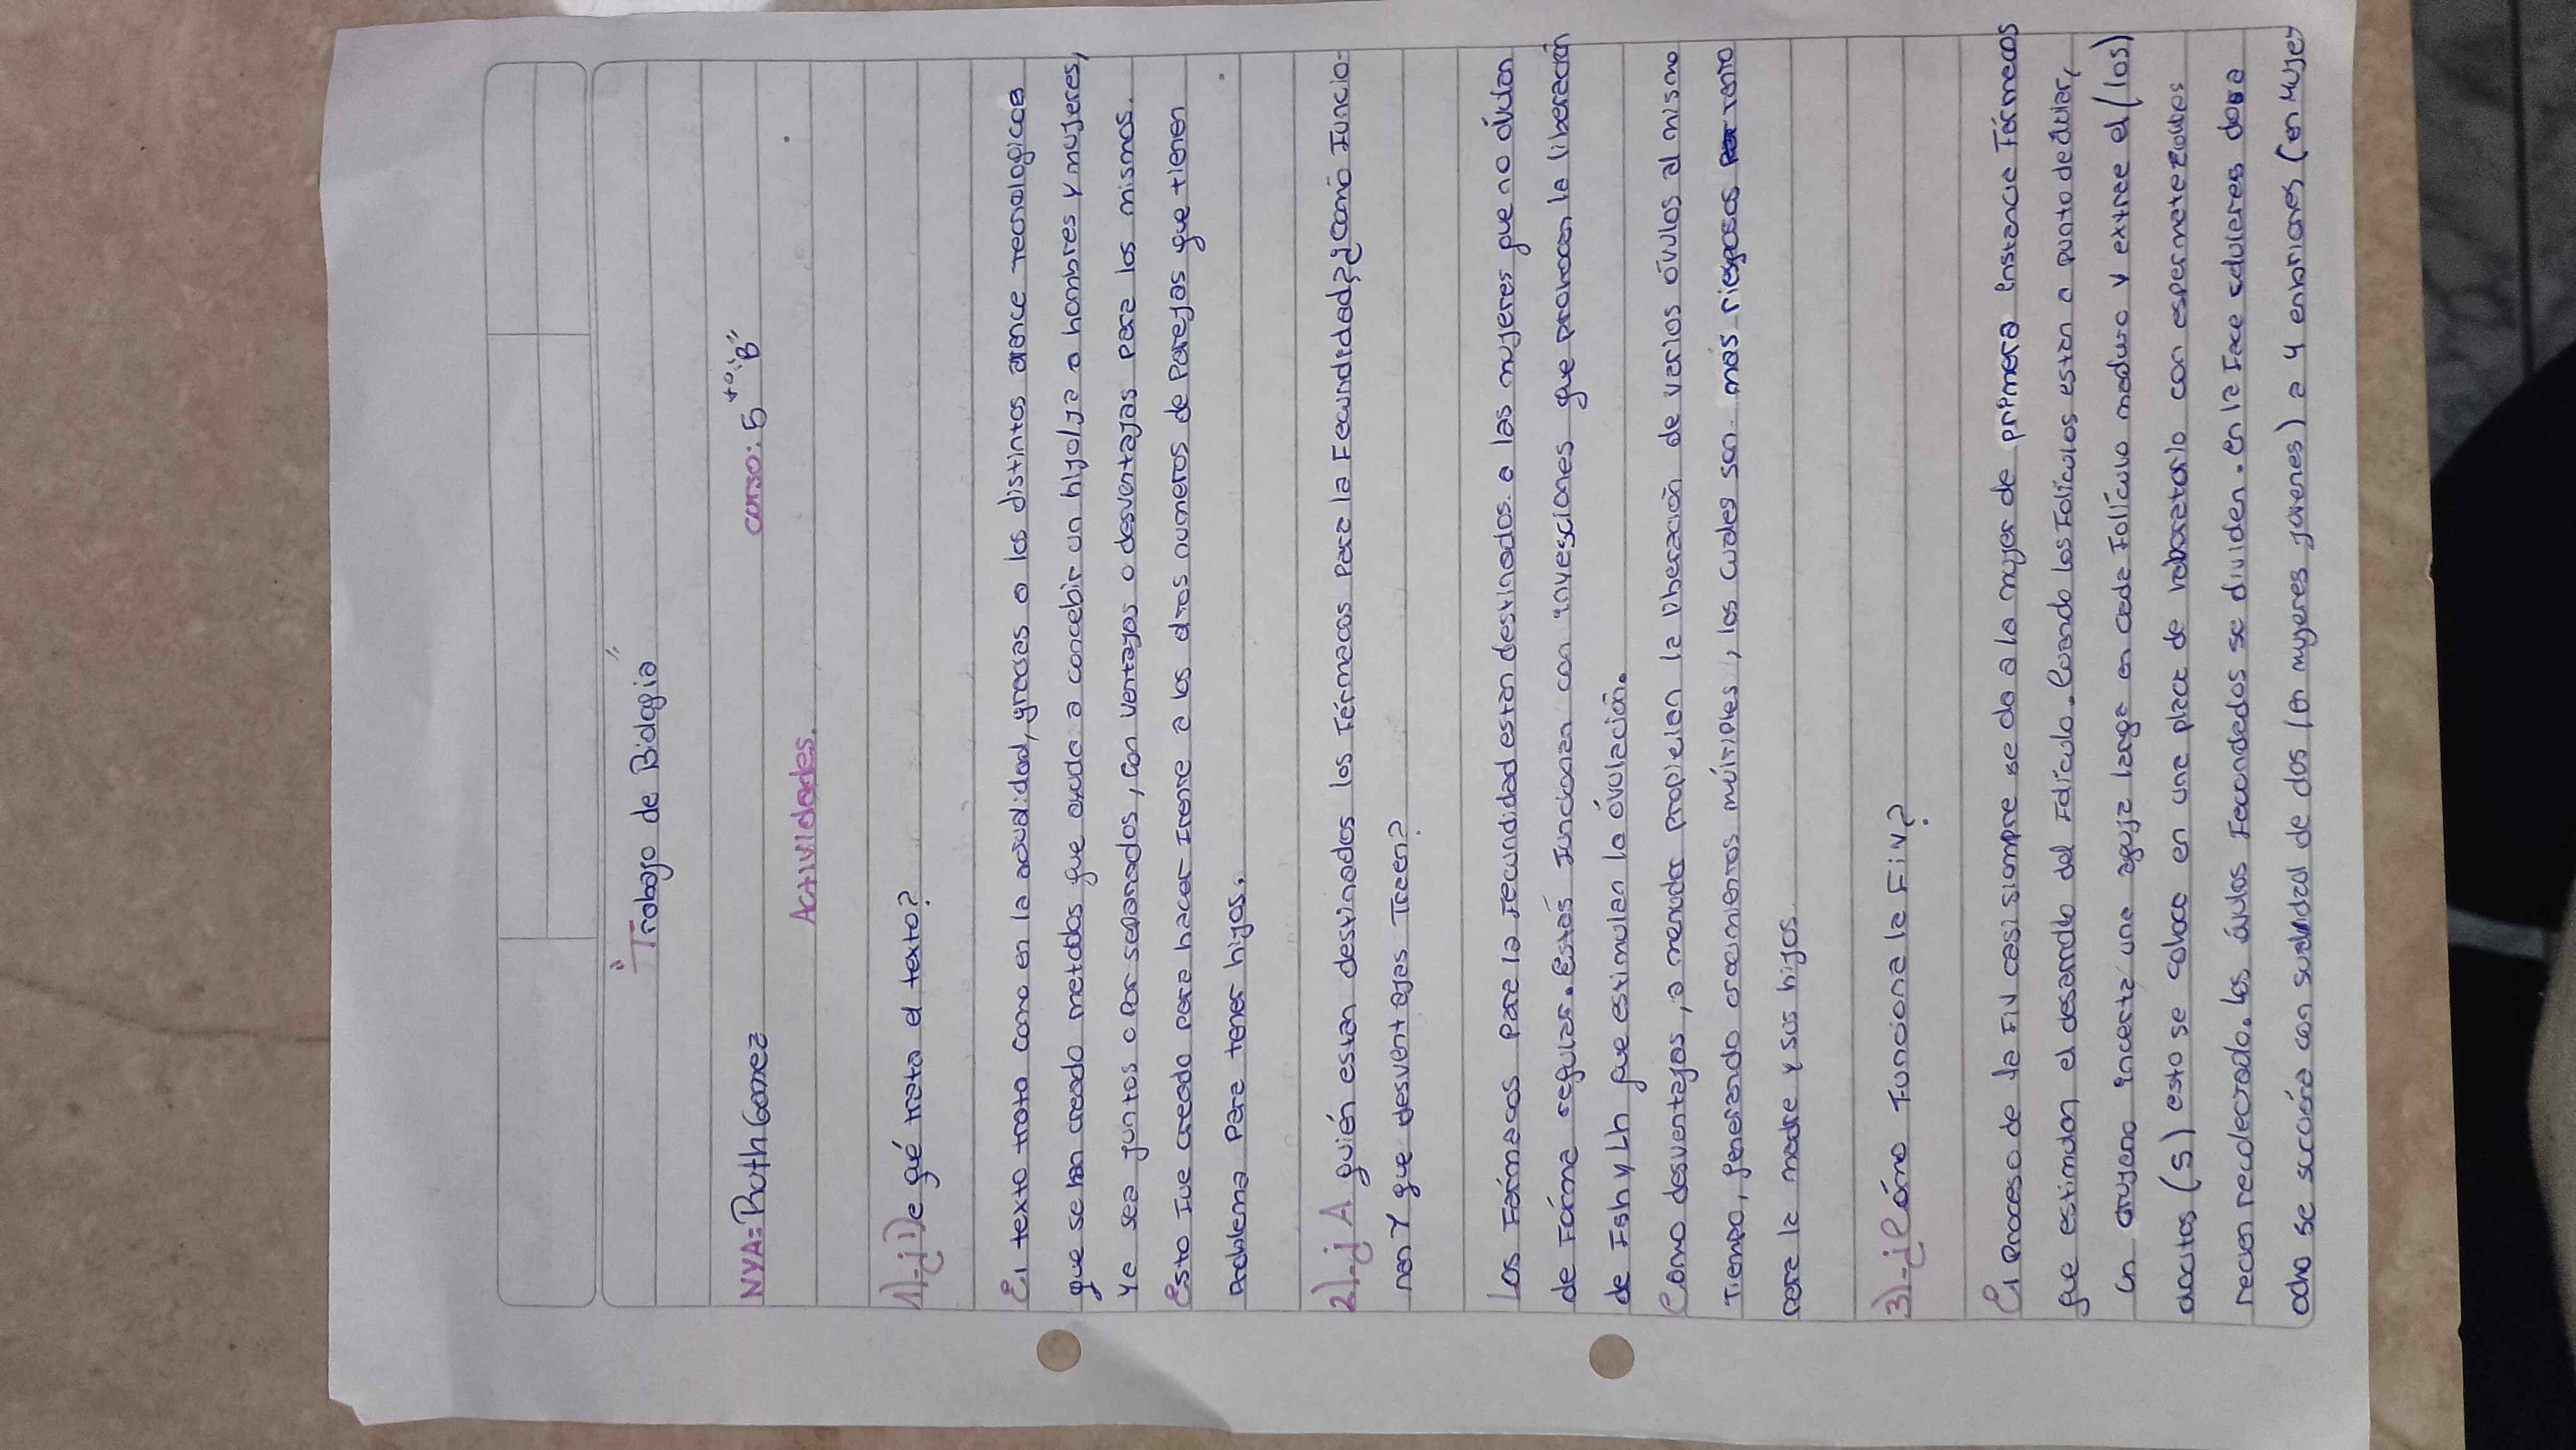 "Trabajo de Biologia"
NYA: Ruth Gomez curso: 5to "B"
Actividades.
1)-¿De qué trata el texto?
El texto trata como en la actualidad, gracias a los distintos avance tecnologicos
que se han creado metodos que ayuda a concebir un hijo/ja a hombres y mujeres,
ya sea juntos o por separados, con ventajas o desventajas para los mismos.
Esto fue creado para hacer frente a los altos numeros de Parejas que tienen
Problema Para tener hijos.
2)-¿A quién estan destinados los fármacos Para la Fecundidad? ¿Cómo funcio-
nan Y que desventajas Traen?
Los Fármacos para la fecundidad estan destinados a las mujeres que no óvulan
de Fórma regular. Estós funcionan con inyesciones que provocan la liberación
de Fsh y Lh que estimulan la óvulación.
Como desventajas, a menudo propicien la liberación de varios óvulos al mismo
Tiempo, generando crecimientos múltiples, los cuales son más riesgosos tanto
para la madre y sus hijos.
3)-¿Cómo funciona la Fiv?
El Proceso de la FIV casi siempre se da a la mujer de primera instancia Fármacos
que estimulan el desarrollo del Folículo. Cuando los Folículos estan a punto de óvular,
un cirujano incerta una aguja larga en cada Folículo maduro y extrae el (los)
ovocitos (s) esto se coloca en una placa de laboratorio con espermatezoides
recien recolectado. los óvulos Fecundados se dividen. en la Face celulares de a
ocho se succióna con suavidad de dos (en mujeres jovenes) a 4 enbriones (en mujer